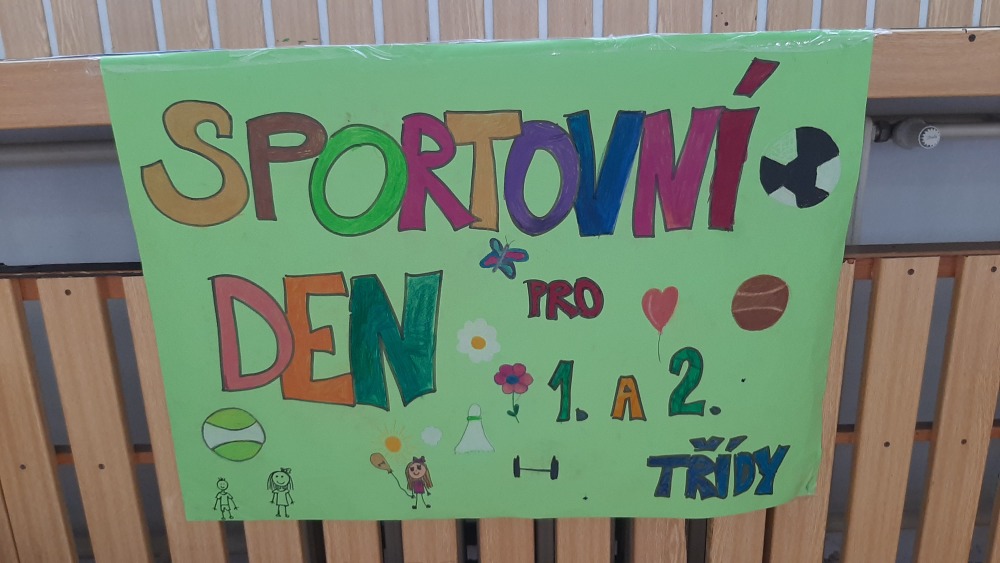 SPORTOVNÍ
DEN PRO
1. A 2.
TŘÍDY